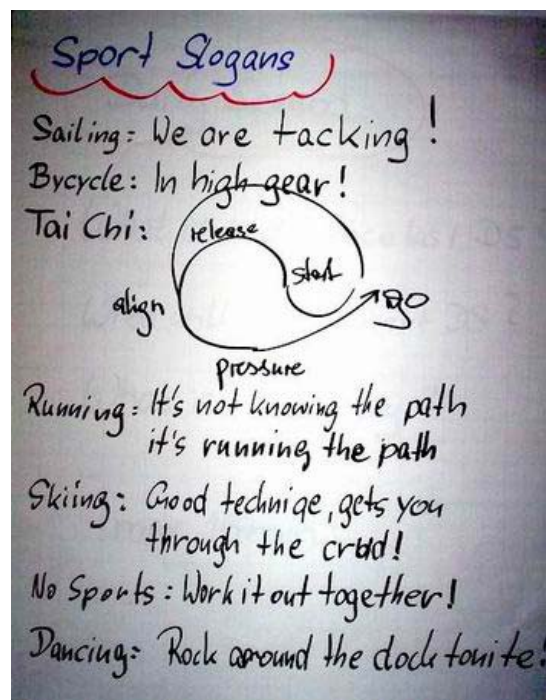 Sport Slogans
Sailing: We are tacking!
Bycycle: In high gear!
Tai Chi:
release
start
align
go
pressure
Running: It's not knowing the path
it's running the path
Skiing: Good techniqe, gets you
through the crud!
No Sports: Work it out together!
Dancing: Rock around the clock tonite!